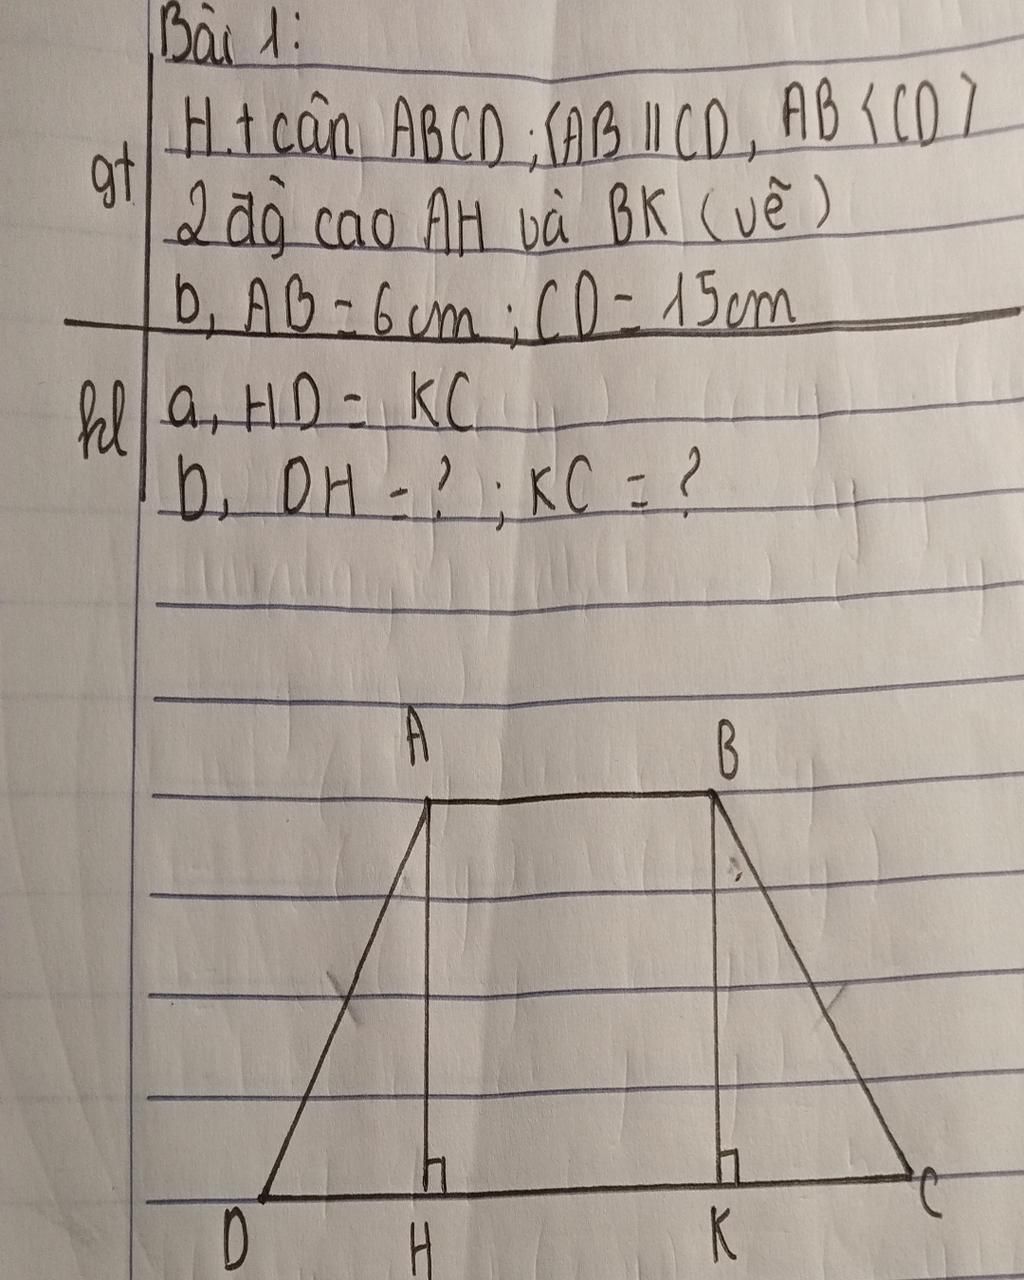 Bài 1:
H.t cân ABCD ; (AB // CD, AB < CD)
gt
2 đg̀ cao AH và BK (vẽ)
b, AB = 6 cm ; CD = 15 cm
kl a, HD = KC
b, DH = ? ; KC = ?
A B
D H K C